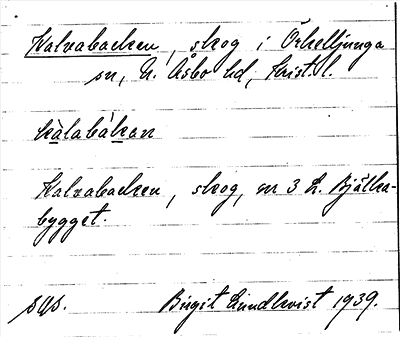 Kalvabacken, skog i Örkelljunga
sn, N. Åsbo hd, Krist. l.
kàlabákan
Kalvabacken, skog, nr 3 L. Bjälka-
bygget.
sgs. Birgit Lindkvist 1939.